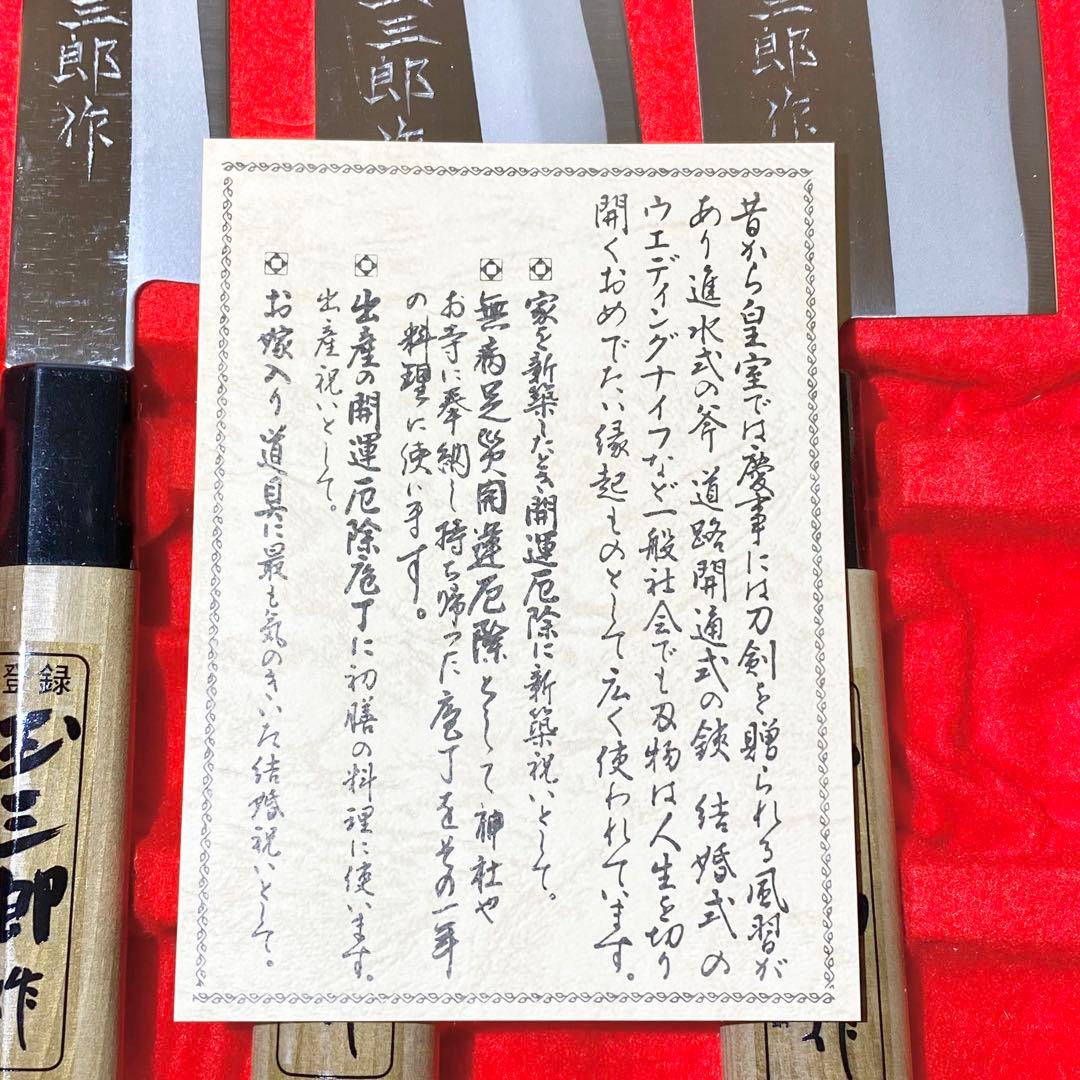 昔から皇室では慶事には刀剣を贈られる風習が
あり進水式の斧 道路開通式の鋏 結婚式の
ウエディングナイフなど一般社会でも刃物は人生を切り
開くおめでたい縁起ものとして広く使われています。
家を新築したとき開運厄除に新築祝いとして。
無病足災開運厄除として神社や
お寺に奉納し持ち帰った庖丁をその一年
の料理に使います。
出産の開運厄除庖丁に初膳の料理に使います。
出産祝いとして。
お嫁入り道具に最も気のきいた結婚祝いとして。
三郎作
三郎作
三郎作
登録
玉三郎作
作